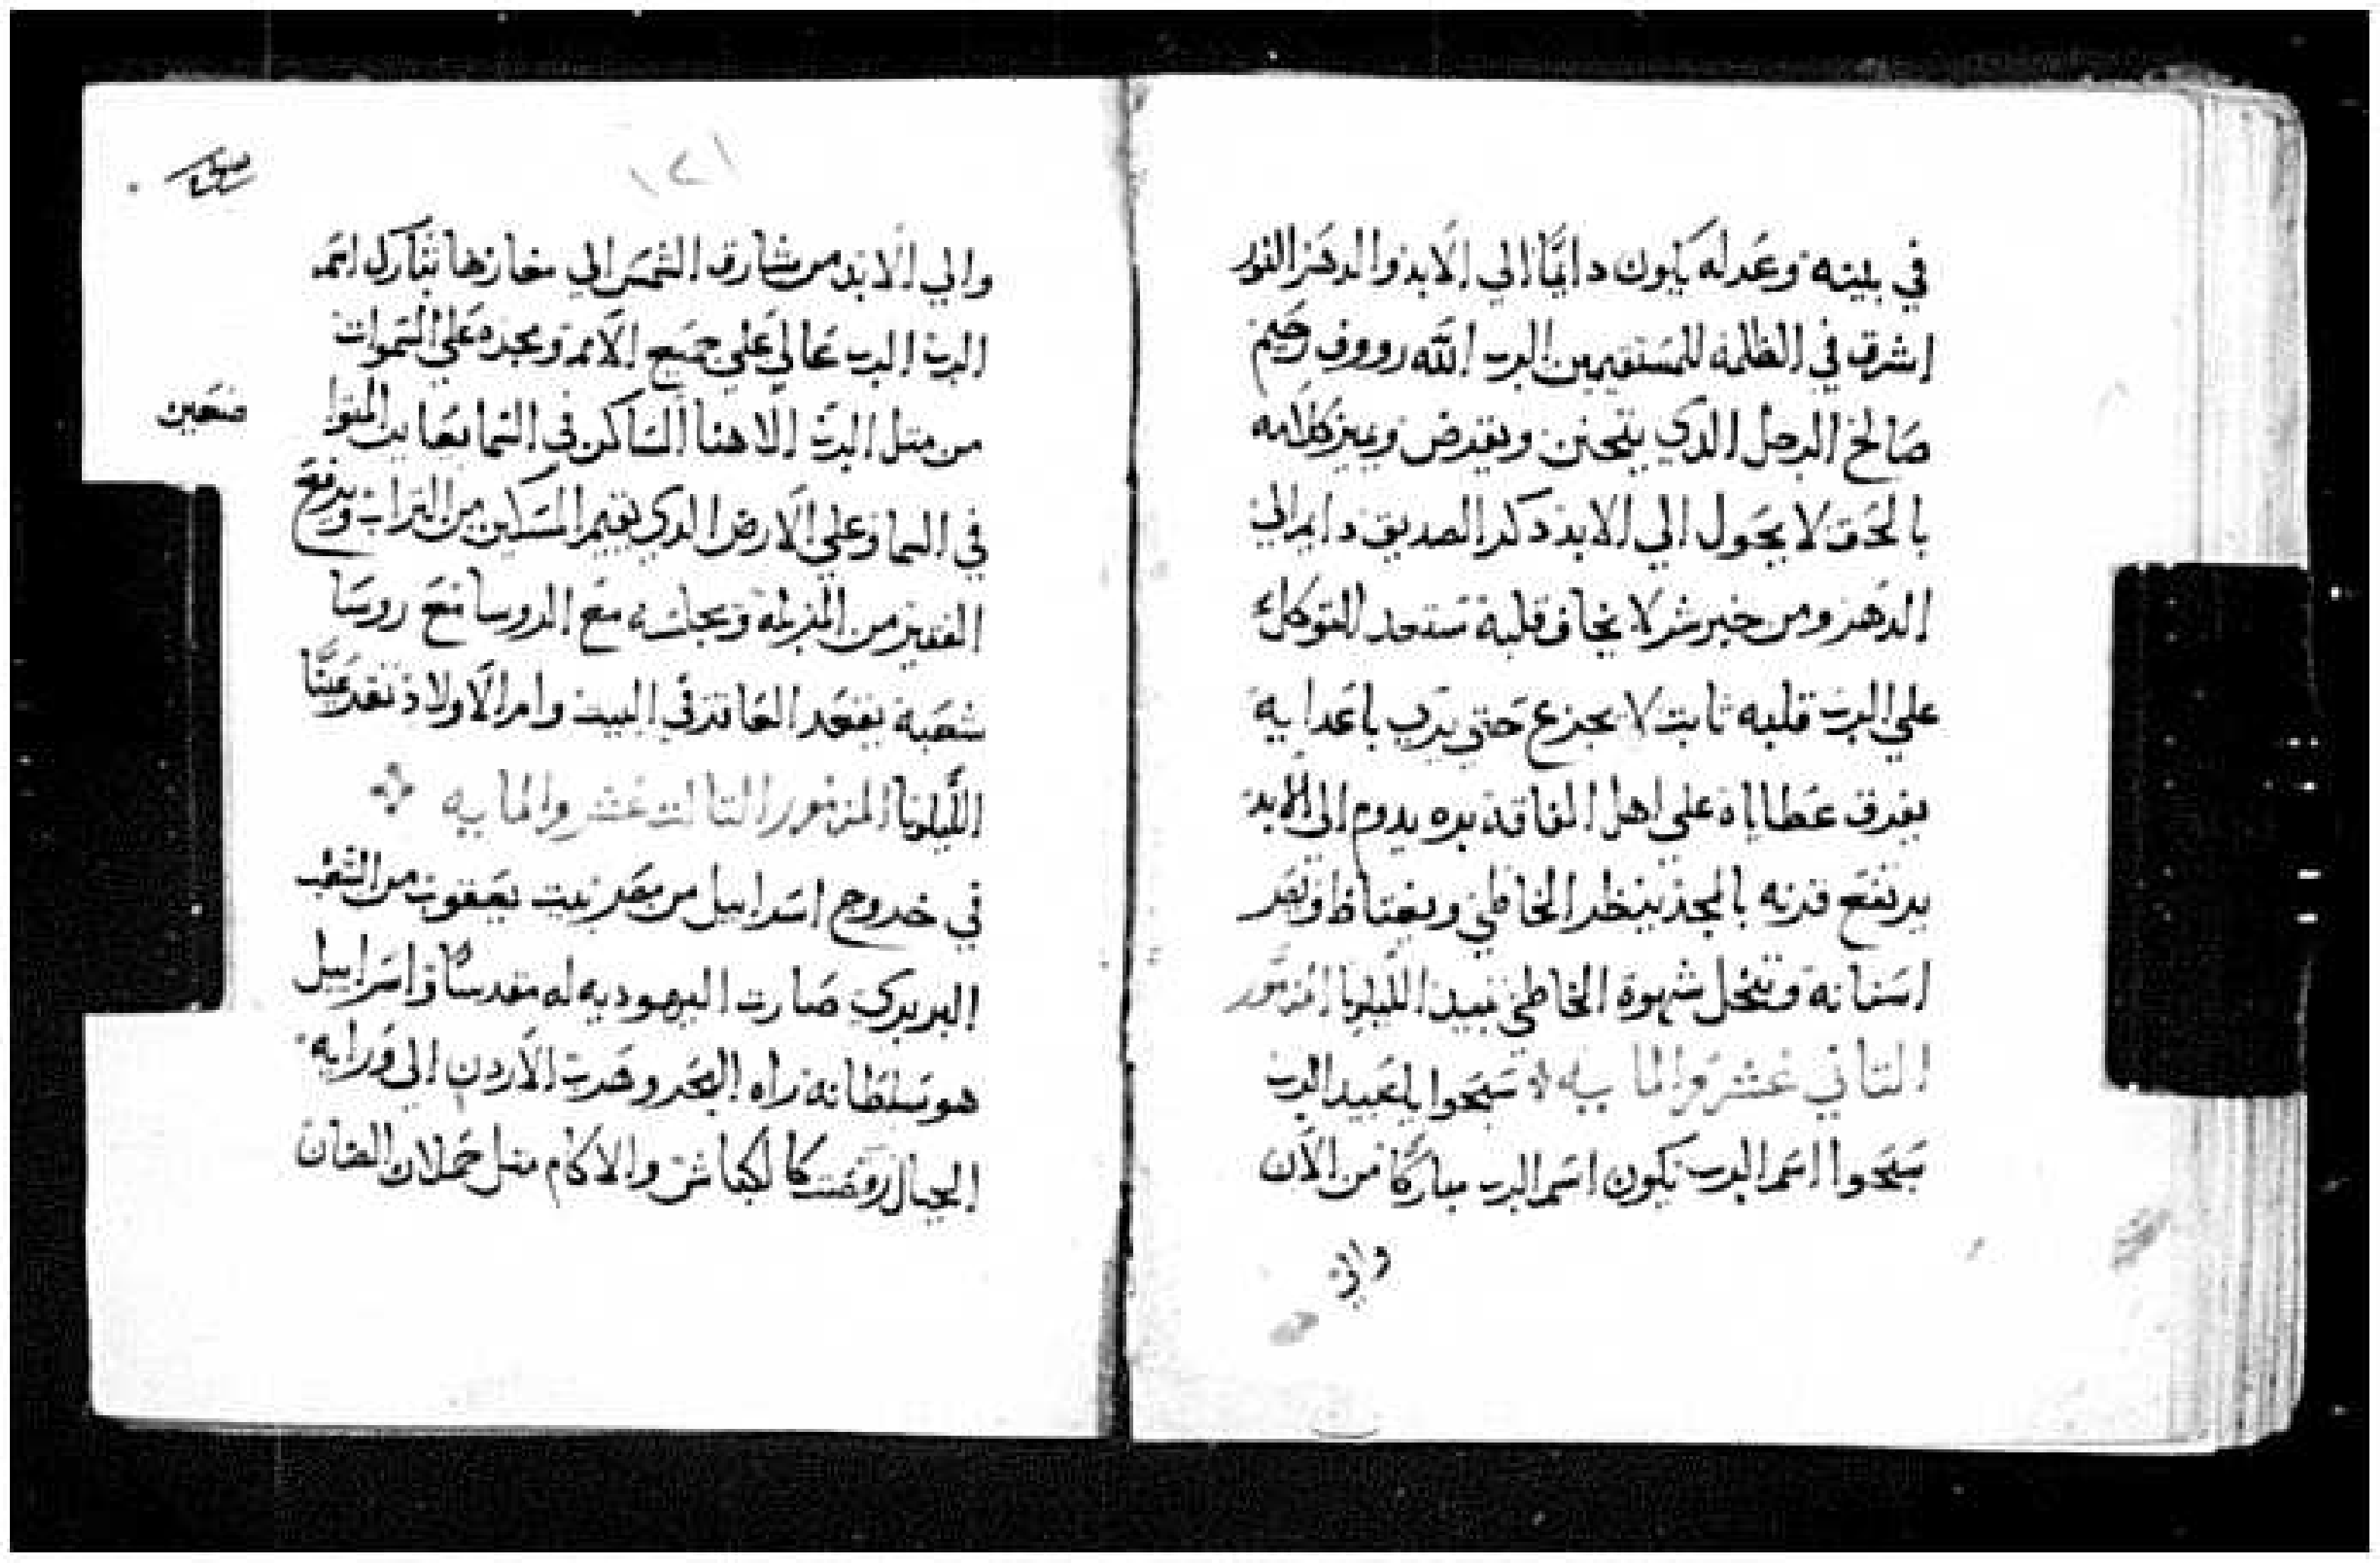 في بيته وعدله يكون دايمًا الي الابد والدهر النور
اشرق في الظلمة للمستقيمين الرب الله رووف رحيم
صالح الرجل الدي يتحنن ويقرض ويميز كلامه
بالحق لا يحول الي الابد دكر الصديق دايم الي
الدهر ومن خبر شر لا يخاف قلبه مستعد للتوكل
علي الرب قلبه ثابت لا يجزع حتي يري باعدايه
يفرق عطاياه علي اهل الفاقة بره يدوم الي الابد
يرتفع قرنه بالمجد ينظر الخاطي ويغتاظ وتصر
اسنانه وتنحل شهوة الخاطي تبيد الليلويا المزمور
التاني عشر والمايه سبحوا يا عبيد الرب
سبحوا اسم الرب يكون اسم الرب مباركًا من الان
والي
١٢١
والي الابد من مشارق الشمس الي مغاربها تبارك اسم
الرب الرب عالي علي جميع الامم ومجده علي السموات
من متل الرب الاهنا الساكن في السما يعاين المتوا
ضعين
في السما وعلي الارض الدي يقيم المساكين من التراب ويرفع
الفقير من المزبلة ويجلسه مع الروسا مع روسا
شعبه يقعد العاقر في البيت وام الاولاد تقر عينًا
الليلويا المزمور التالت عشر والمايه
في خروج اسراييل من مصر بيت يعقوب من الشعب
البربري صارت اليهوديه له مقدسًا واسراييل
هو سلطانه راه البحر وهرب الاردن الي ورايه
الجبال رقصت كالكباش والاكام متل حملان الضان